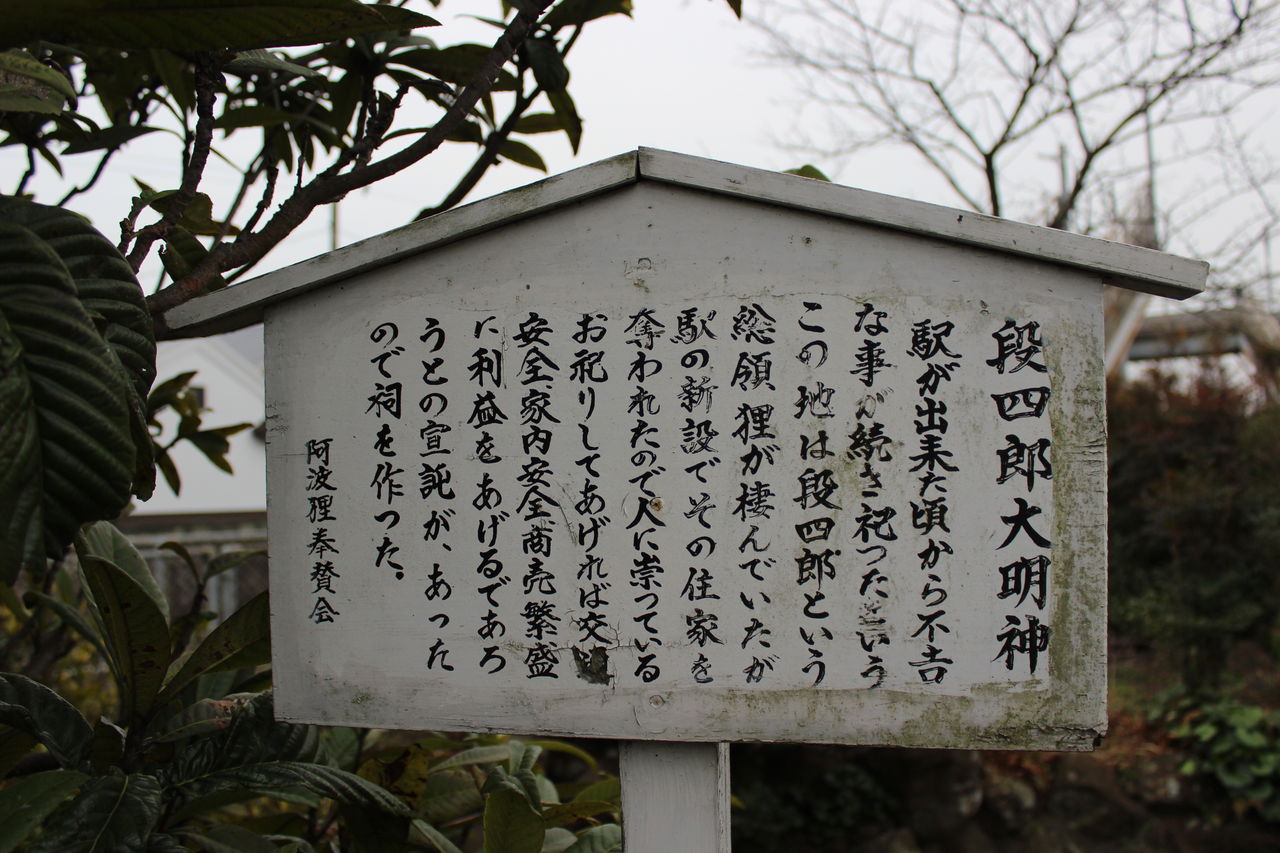 段四郎大明神
駅が出来た頃から不吉
な事が続き祀つたという
この地は段四郎という
総領狸が棲んでいたが
駅の新設でその住家を
奪われたので人に祟っている
お祀りしてあげれば交
安全家内安全商売繁盛
に利益をあげるであろ
うとの宣託が、あった
ので祠を作った。
阿波狸奉賛会